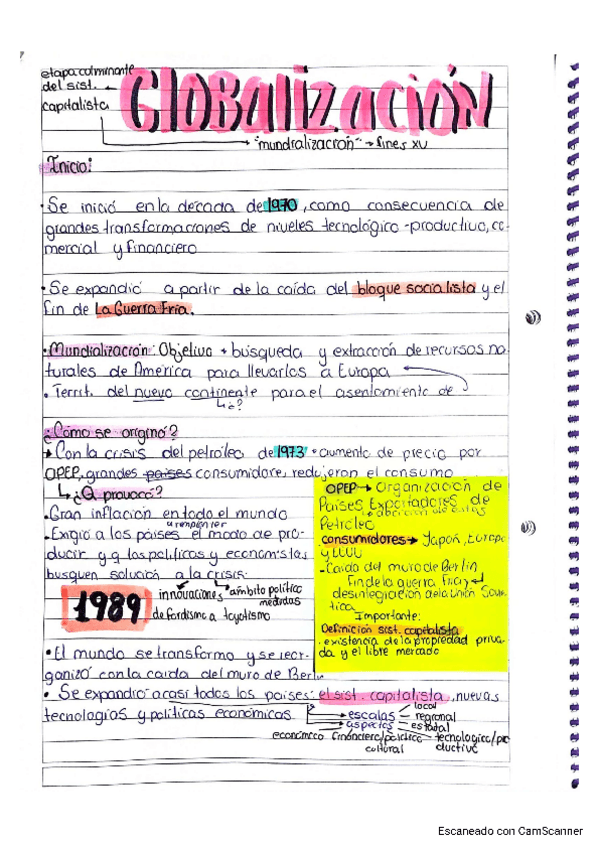 etapa culminante
del sist.
capitalista
GLOBALIZACIÓN
"mundialización" → fines XV
Inicio:
• Se inició en la década de 1970, como consecuencia de
grandes transformaciones de niveles tecnológico-productivo, co-
mercial y financiero
• Se expandió a partir de la caída del bloque socialista y el
fin de La Guerra Fría.
• Mundialización: Objetivo → búsqueda y extracción de recursos na-
turales de América para llevarlos a Europa
• Territ. del nuevo continente para el asentamiento de
¿Cómo se originó?
→ Con la crisis del petróleo de 1973 → aumento de precio por
OPEP, grandes países consumidore, redujeron el consumo
↳ ¿Q provocó?
• Gran inflación en todo el mundo
• Exigió a los países el modo de pro-
ducir y q los políticos y economistas
busquen solución a la crisis.
1989
innovaciones
ámbito político
medidas
de fordismo a toyotismo
OPEP → Organización de
Países Exportadores de
Petróleo
consumidores → Japón, Europa
y EEUU
- Caída del muro de Berlín
Fin de la guerra Fría
desintegración de la Unión Sovié-
tica
Importante:
Definición sist. capitalista
• existencia de la propiedad priva-
da y el libre mercado
• El mundo se transformo y se reor-
ganizó con la caída del muro de Berlí
• Se expandió a casi todos los países: el sist. capitalista, nuevas
tecnologías y políticas económicas
escalas
local
regional
estatal
aspectos
económico
financiero/político
cultural
tecnológico/pro
ductivo
Escaneado con CamScanner